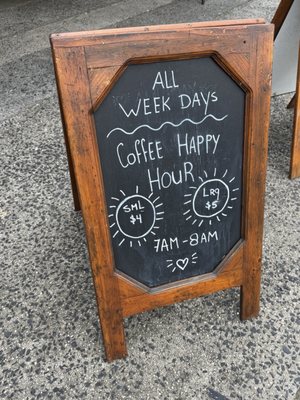 ALL
WEEK DAYS
COFFEE HAPPY
HOUR
SML LRG
$4 $5
7AM - 8AM